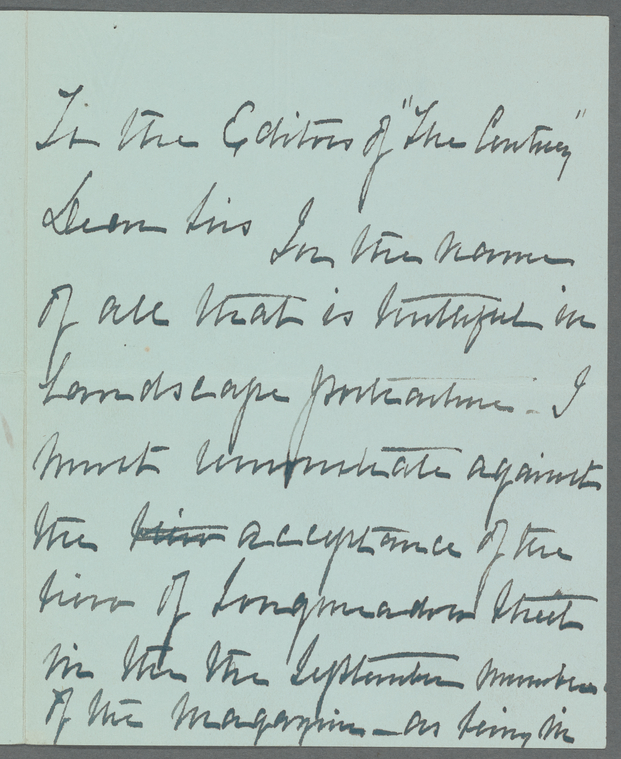 To the Editors of "The Century"
Dear Sirs
In the name
of all that is truthful in
Landscape portraiture - I
must remonstrate against
the view acceptance of the
view of Longmeadow Street
in the the September number
of the Magazine - as being in